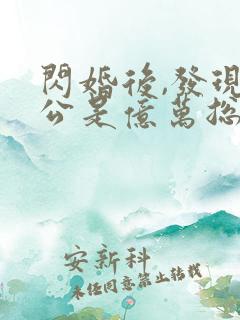 閃婚後,發現
公是億萬總
安新科
未經同意禁止轉載